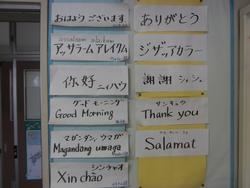 おはよう ございます
assalaam alaikum
アッサラーム アレイクム
你好 ニイハウ
グッド モーニング
Good Morning
マガンダン, ウマガ
Magandang umaga
シンチャオ
Xin chào
ありがとう
ジザッアカラー
謝謝 シェシェ
サンキュウ
Thank you
Salamat